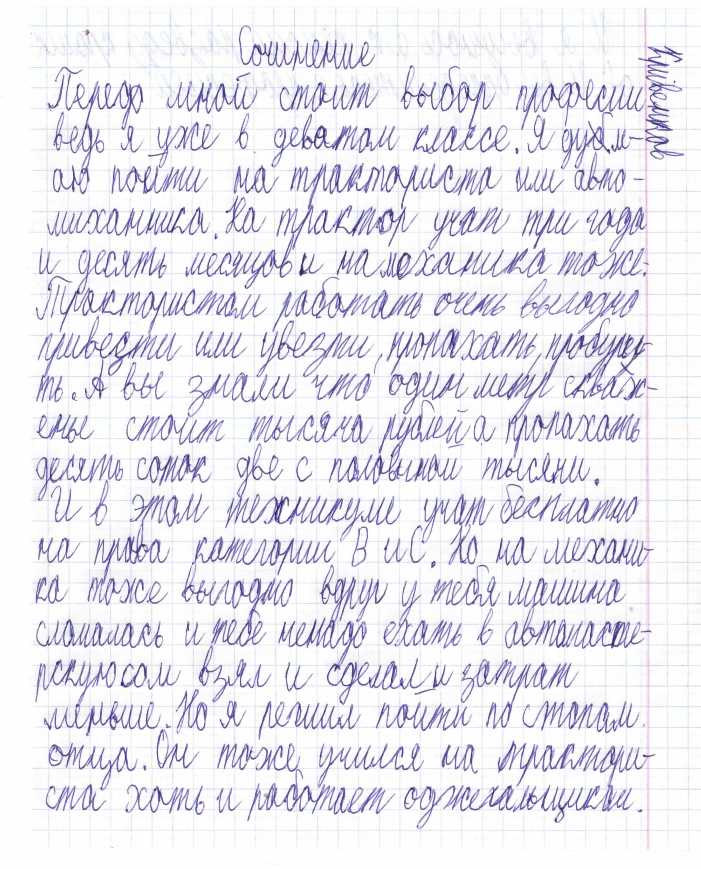 Сочинение
Кривенков
Передо мной стоит выбор професии
ведь я уже в девятом классе. Я дум-
аю пойти на тракториста или авто-
миханника. На трактор учат три года
и десять месяцов и на механика тоже.
Трактористом работать очень выгодно
привести или увезти, пропахать, пробурет-
ть. А вы знали что один метр скваж-
енье стоит тысяча рублей а пропахать
десять соток две с половиной тысячи.
И в этом техникуме учат бесплатно
на права категории В и С. Но на механи-
ка тоже выгодно вдруг у тебя машина
сломалась и тебе ненадо ехать в автомасте-
рскую сам взял и сделал и затрат
меньше. Но я решил пойти по стопам
отца. Он тоже учился на трактори-
ста хоть и работает